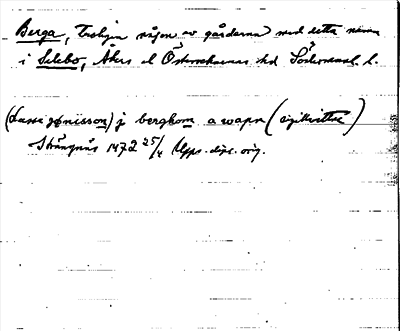 Berga, Troligen någon av gårdarna med detta namn
i Selebo, Åkers el Österrekarnas hd Södermanl. l.
(Lasse jønisson) j berghom a wapn (
Strängnäs 1472 25/4 Upps. dipl. orig.